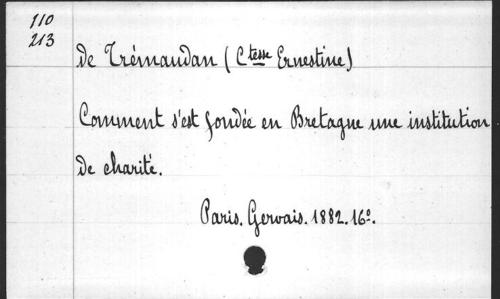 110
213
de Trémaudan (Ctesse Ernestine)
Comment s'est fondée en Bretagne une institution
de charité.
Paris. Gervais. 1882. 16º.